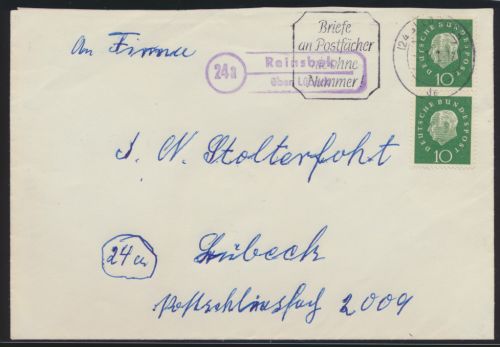 Briefe
an Postfächer
nie ohne
Nummer!
An Firma
24a
Reinsbek
über Lübeck
DEUTSCHE BUNDESPOST
10
DEUTSCHE BUNDESPOST
10
J. N. Stolterfoht
24a
Lübeck
Postschliessfach 2009